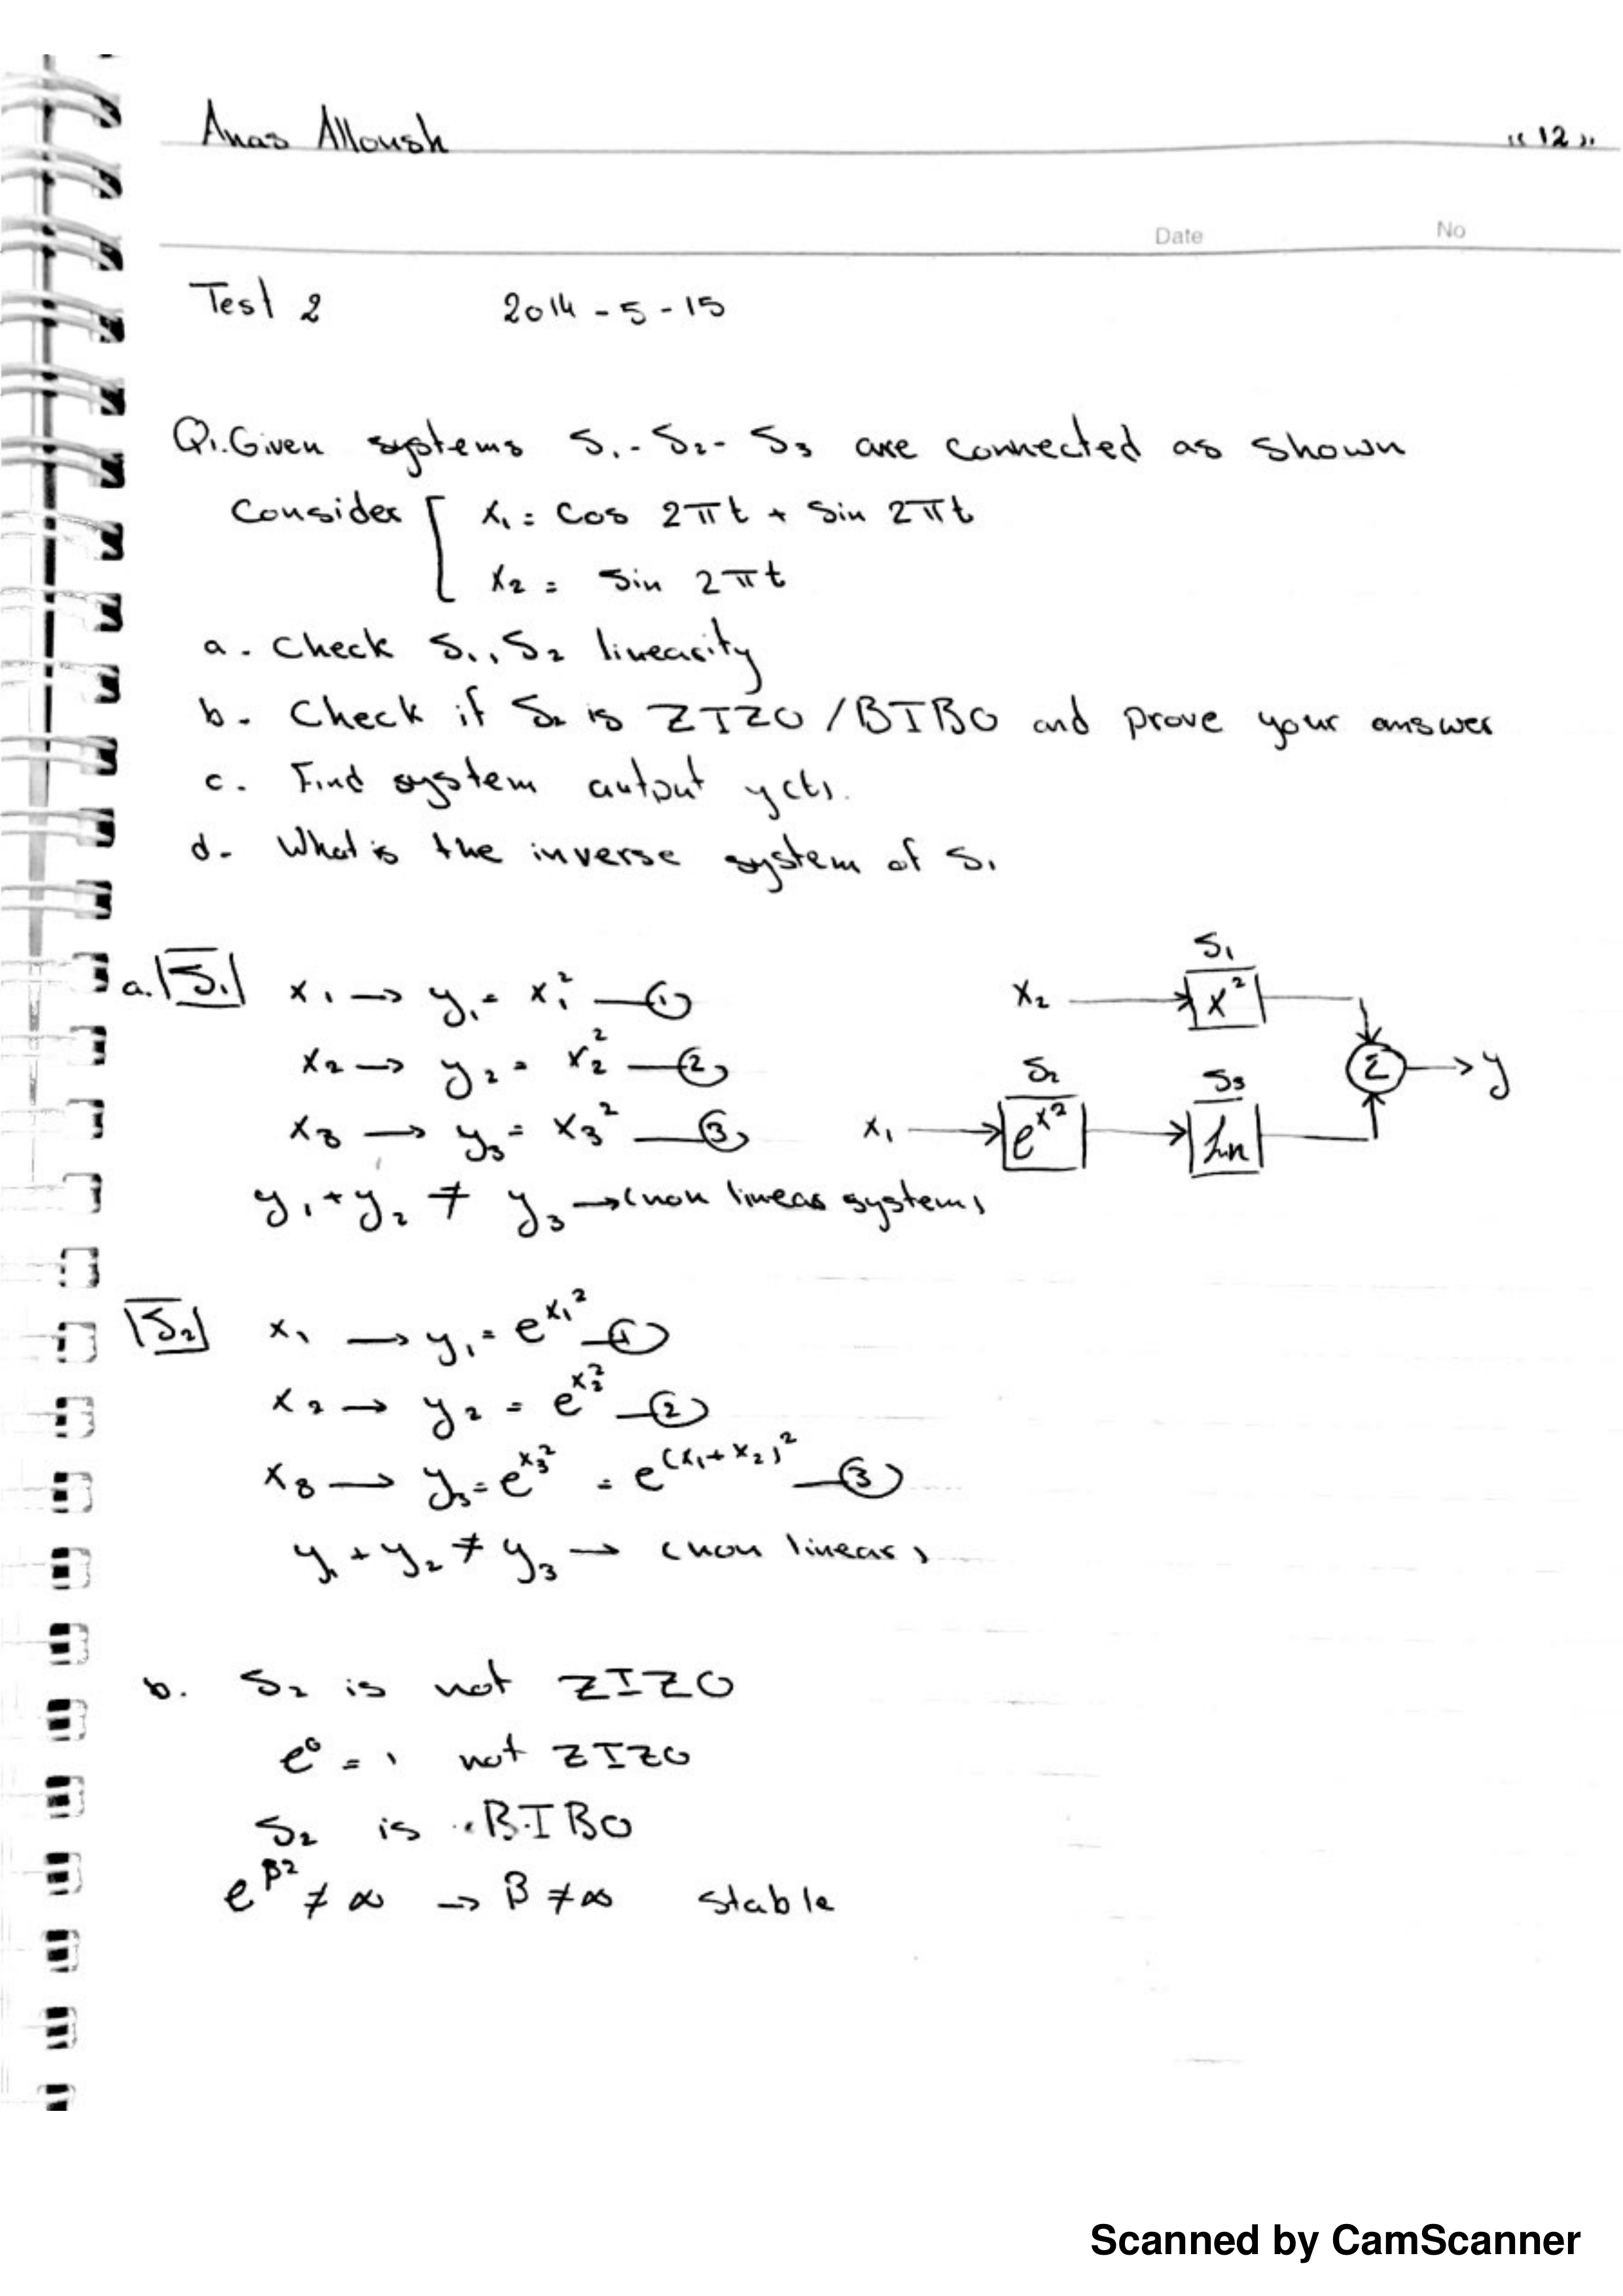 Anas Alloush "12"
Date No
Test 2 2014-5-15
Q1. Given systems S1 - S2 - S3 are connected as shown
Consider [ x1 = cos 2πt + sin 2πt
x2 = sin 2πt
a. Check S1, S2 linearity
b. Check if S2 is ZIZO / BIBO and prove your answer
c. Find system autput y(t).
d. What is the inverse system of S1
a. S1 x1 → y1 = x1² —①
x2 → y2 = x2² —②
x3 → y3 = x3² —③
y1 + y2 ≠ y3 → (non linear system)
S1
x2 → x² 
Σ → y
S2 S3
x1 → e^x² → Ln
S2 x1 → y1 = e^x1² —①
x2 → y2 = e^x2² —②
x3 → y3 = e^x3² = e^(x1+x2)² —③
y1 + y2 ≠ y3 → (non linear)
b. S2 is not ZIZO
e⁰ = 1 not ZIZO
S2 is BIBO
e^β² ≠ ∞ → β ≠ ∞ stable
Scanned by CamScanner